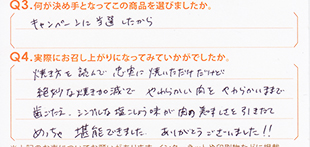 Q3.何が決め手となってこの商品を選びましたか。
キャンペーンに当選したから
Q4.実際にお召し上がりになってみていかがでしたか。
焼き方を読んで忠実に焼いただけだけど
絶妙な焼き加減で やわらかい肉をやわらかいままで
歯ごたえ、シンプルな塩こしょう味が肉の美味しさを引きたて
めっちゃ堪能できました。ありがとうございました!!